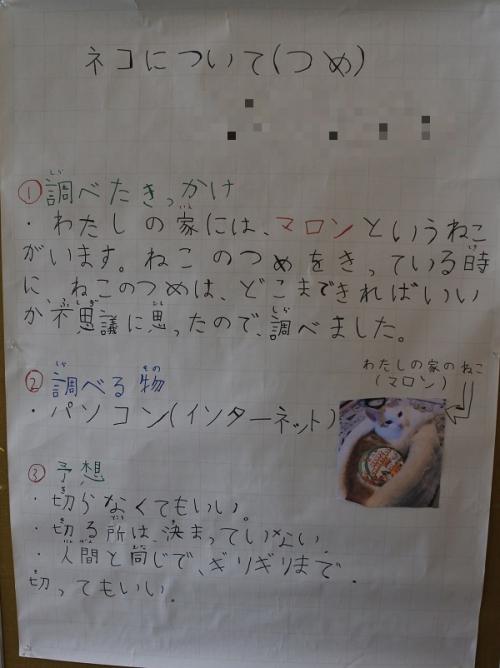 ネコについて(つめ)
①調べたきっかけ
・わたしの家には、マロンというねこ
がいます。ねこのつめをきっている時
に、ねこのつめは、どこまできればいい
か不思議に思ったので、調べました。
②調べる物
・パソコン(インターネット)
わたしの家のねこ
(マロン)
③予想
・切らなくてもいい。
・切る所は、決まっていない。
・人間と同じで、ギリギリまで
切ってもいい。